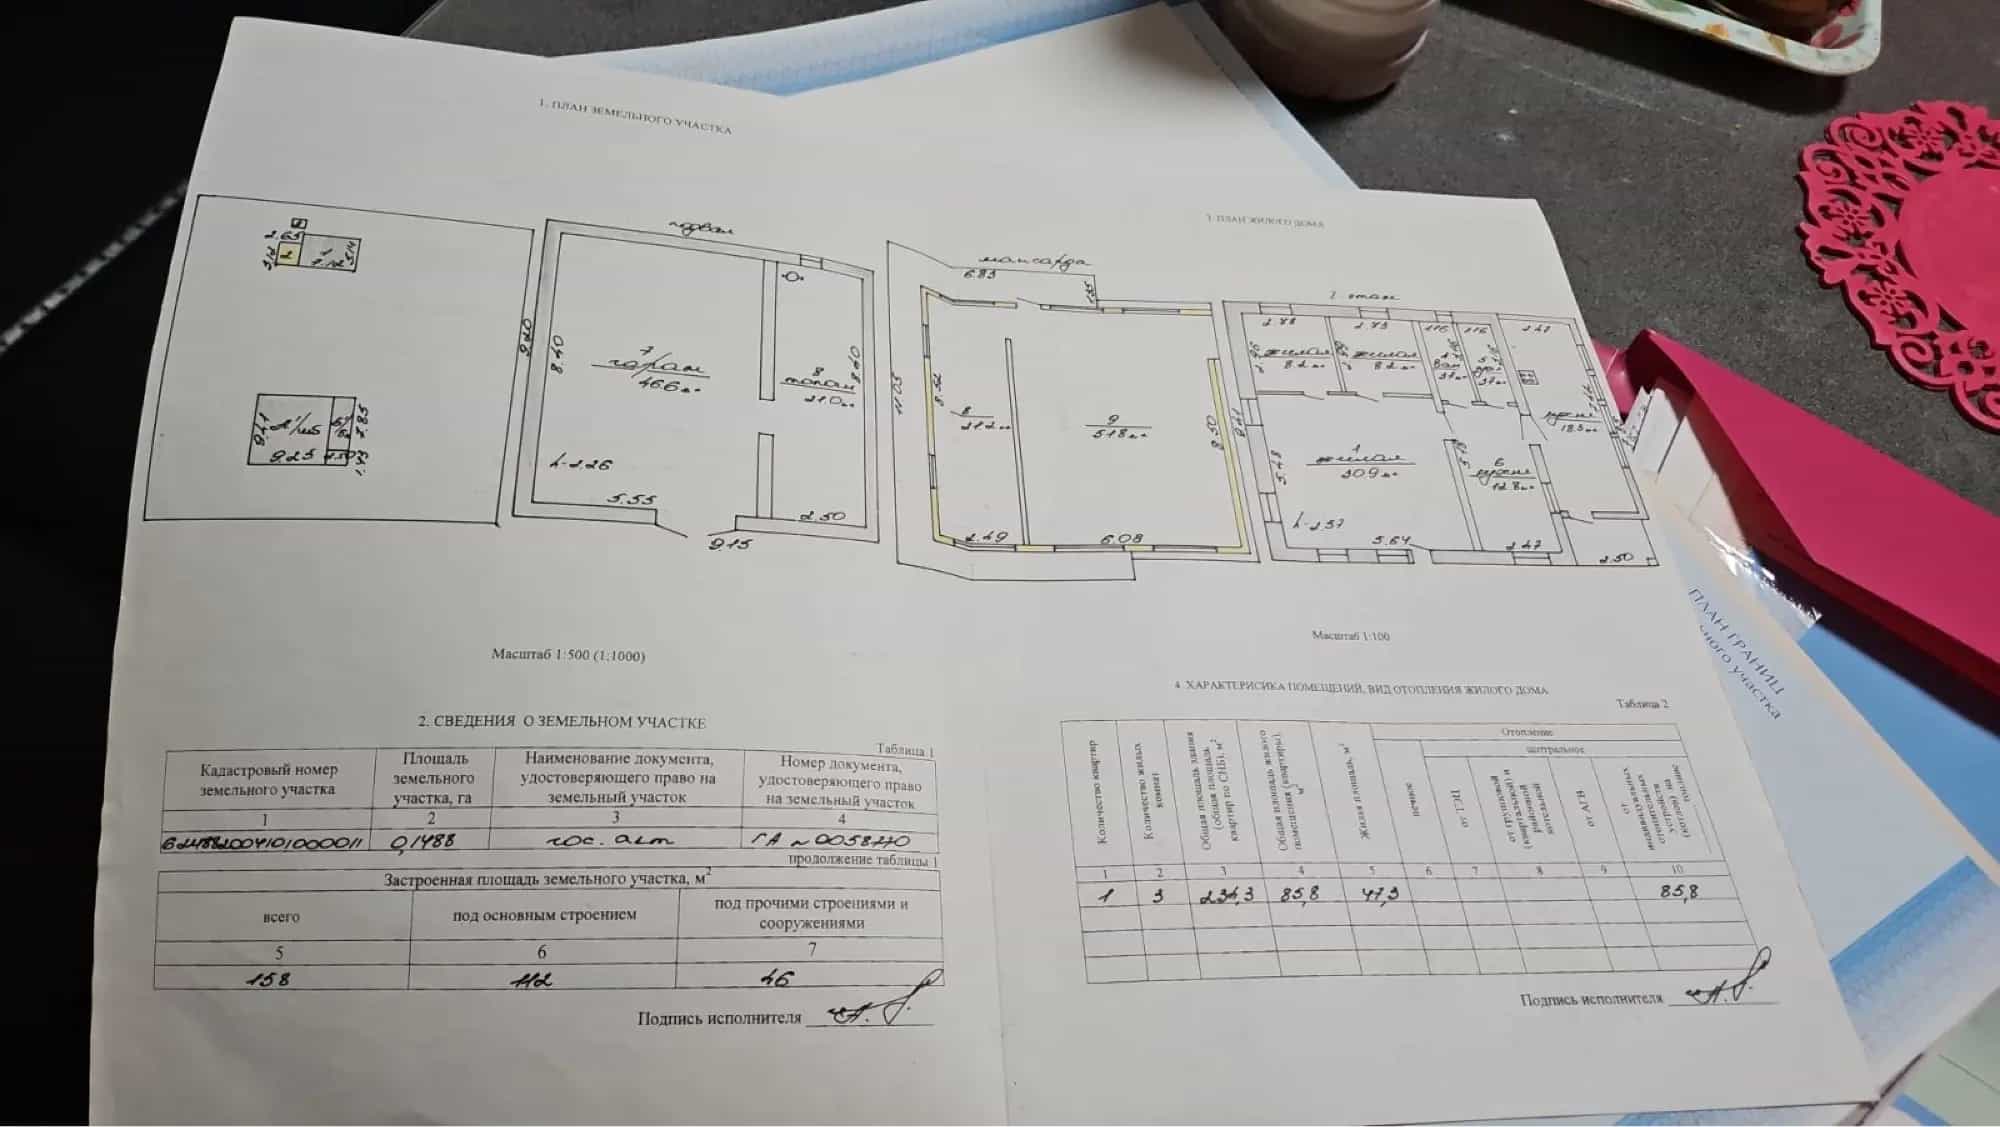 1. ПЛАН ЗЕМЕЛЬНОГО УЧАСТКА
2.65
3.12
2
1
7.12
3.14
9.41
9.25
7.85
9.20
подвал
8.40
7
гараж
46.6 м²
8
топан
21.0 м²
8.40
h-2.26
5.55
2.50
9.15
Масштаб 1:500 (1:1000)
3. ПЛАН ЖИЛОГО ДОМА
мансарда
6.83
11.03
8.52
8
21.2 м²
9
51.8 м²
8.50
2.49
6.08
1 этаж
2.78
2.75
1.16
1.16
2.47
2.96
жилая
8.2 м²
жилая
8.2 м²
кухня
18.5 м²
9.41
5.48
1
жилая
30.9 м²
5.18
6
кухня
12.8 м²
h-2.57
5.64
2.47
2.50
Масштаб 1:100
2. СВЕДЕНИЯ О ЗЕМЕЛЬНОМ УЧАСТКЕ
Таблица 1
Кадастровый номер земельного участка
Площадь земельного участка, га
Наименование документа, удостоверяющего право на земельный участок
Номер документа, удостоверяющего право на земельный участок
1 2 3 4
622488200410 1000011 0,1488 гос. акт ГА №0058770
продолжение таблицы 1
Застроенная площадь земельного участка, м²
всего
под основным строением
под прочими строениями и сооружениями
5 6 7
158 112 46
Подпись исполнителя
4. ХАРАКТЕРИСИКА ПОМЕЩЕНИЙ, ВИД ОТОПЛЕНИЯ ЖИЛОГО ДОМА
Таблица 2
Количество квартир
Количество жилых комнат
Общая площадь здания (общая площадь квартир по СНБ), м²
Общая площадь жилого помещения (квартиры), м²
Жилая площадь, м²
Отопление
печное
центральное
от ТЭЦ
от групповой (квартальной) и районной котельной
от АГВ
от индивидуальных отопительных устройств (котлов) на топливе
1 2 3 4 5 6 7 8 9 10
1 3 234,3 85,8 47,3 85,8
Подпись исполнителя
ПЛАН ГРАНИЦ
участка